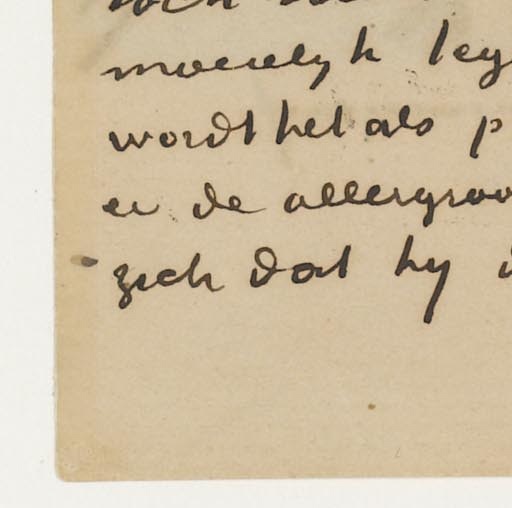 toch
moeielyk leg
wordt het als p
en de allergroo
zich dat hy d